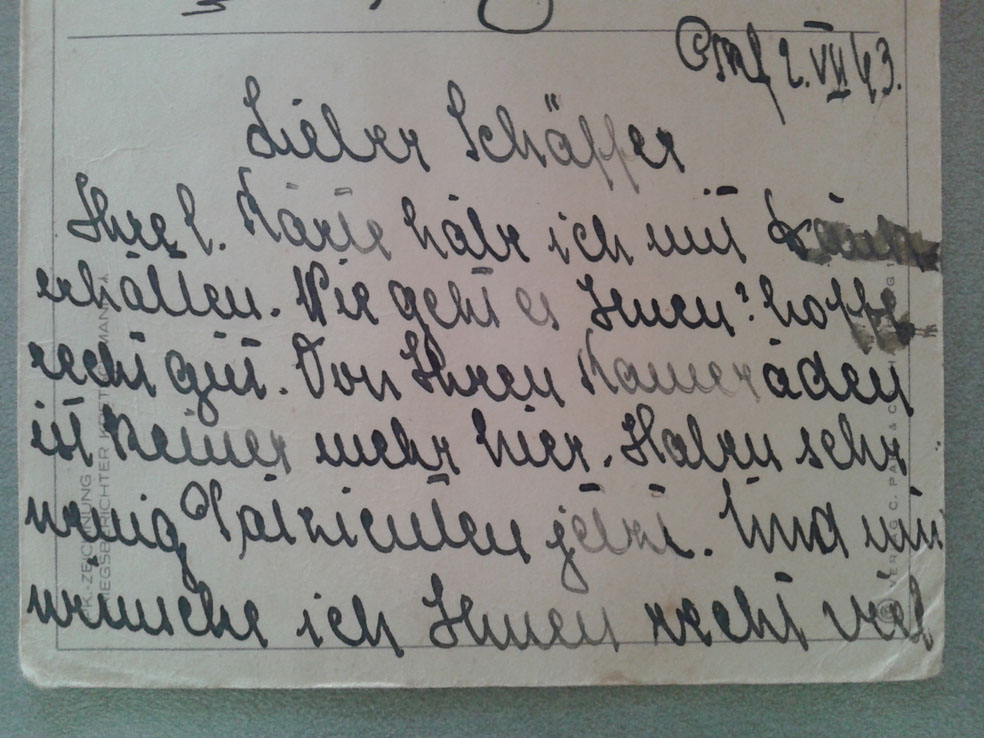 2. VII 43.
Lieber Schäffer
Ihre l. Karte habe ich mit Dank
erhalten. Wie geht es Ihnen? hoffe
recht gut. Von Ihren Kameraden
ist keiner mehr hier. Haben sehr
wenig Patienten jetzt. Und nun
wünsche ich Ihnen recht viel
PK.-ZEICHNUNG
KRIEGSBERICHTER
VERLAG C.